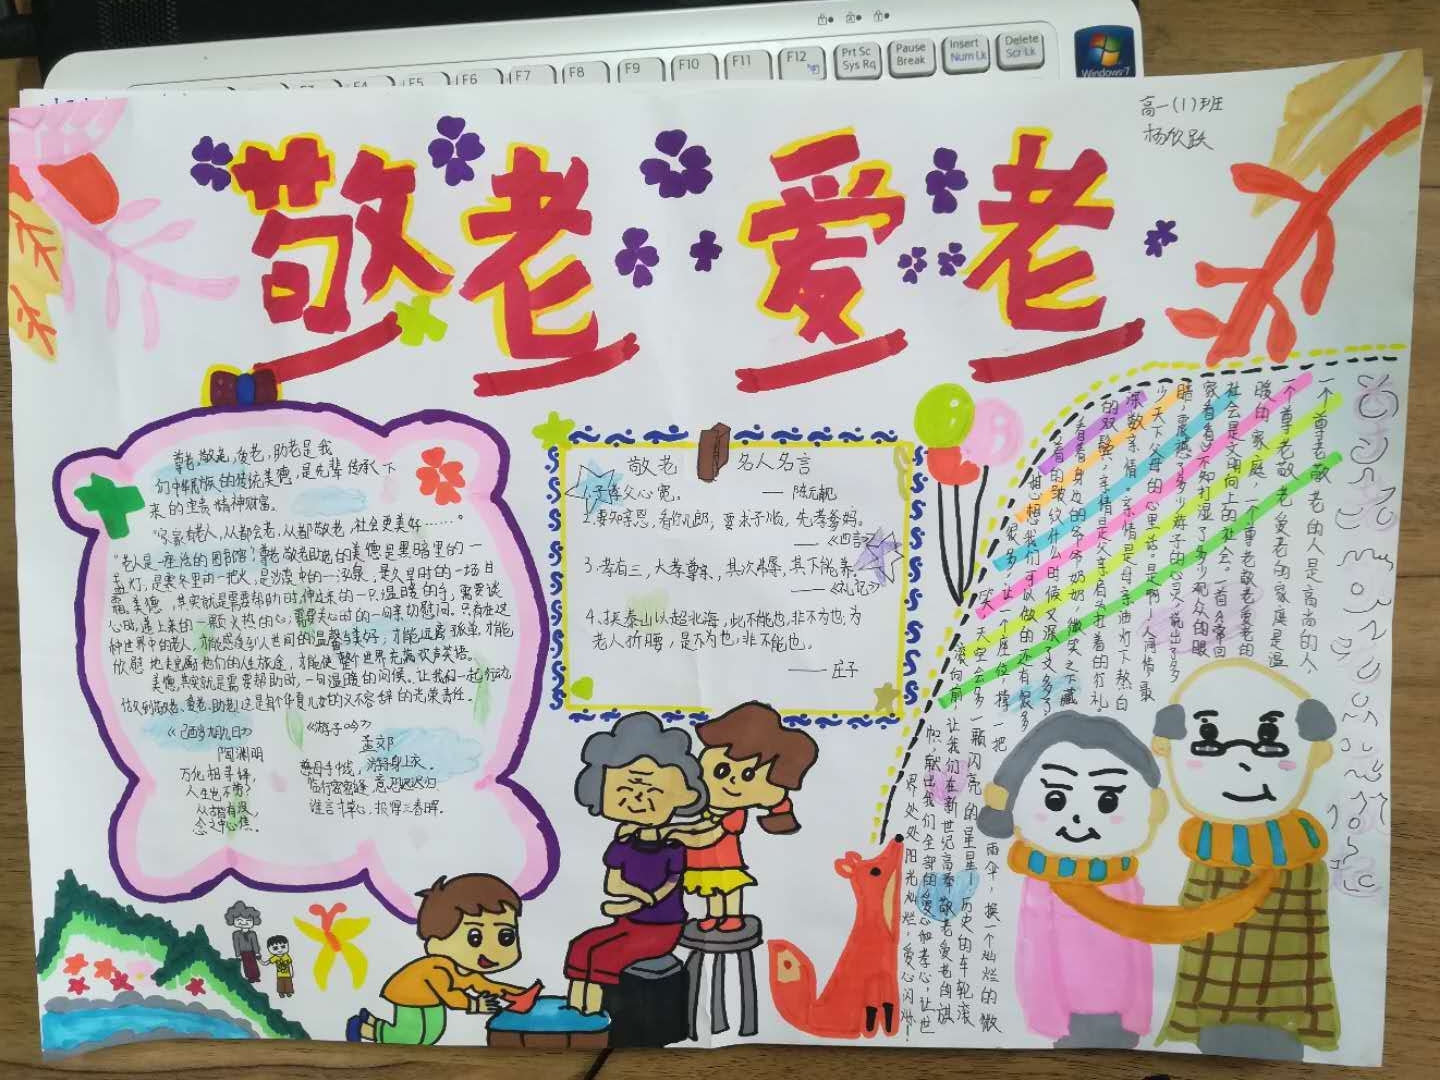 F7
F8
F9
F10
F11
F12
Prt Sc
Sys Rq
Pause
Break
Insert
Num Lk
Delete
Scr Lk
Windows 7
高一(1)班
敬老 爱老
尊老,敬老,爱老,助老是我
们中华民族的传统美德,是先辈传承下
来的宝贵精神财富。
"家家有老人,人人都会老,从都敬老,社会更美好……。
"老人是一座活的图书馆";尊老敬老助老的美德是黑暗里的一
盏灯,是寒冬里的一把火,是沙漠中的一泓泉,是久旱时的一场甘
霖,美德,其实就是需要帮助时,伸过来的一只温暖的手,需要谈
心时,递上来的一颗火热的心;需要关心时的一句亲切慰问。只有在这
种世界中的老人,才能感受到人世间的温馨与美好;才能远离孤单,才能
欣慰地走完
他们的人生旅途,才能使整个世界充满欢声笑语。
美德,其实就是需要帮助时,一句温暖的问候。让我们一起行动
做到敬老、爱老、助老!这是每个华夏儿女的义不容辞的光荣责任。
《己酉岁九月九日》
陶渊明
万化相寻绎,
人生岂不劳?
从古皆有没,
念之中心焦。
《游子吟》
孟郊
慈母手中线,游子身上衣。
临行密密缝,意恐迟迟归。
谁言寸草心,报得三春晖。
敬老 名人名言
1.子孝父心宽。 —— 陈元靓
2.要知亲恩,看你儿郎,要求子顺,先孝爹妈。
——《四言》
3.孝有三,大孝尊亲,其次弗辱,其下能养。
——《礼记》
4.挟泰山以超北海,此不能也,非不为也;为
老人折腰,是不为也,非不能也。
—— 庄子
一个尊老敬老的人是高高的人,
一个尊老敬老爱老的家庭是温
暖的家庭,一个尊老敬老爱老的
社会是文明向上的社会。一首《常回
家看看》不知打湿了多少观众的眼
睛,震撼了多少游子的心灵,说出了多
少天下父母的心里话。是啊!人间情最
深数亲情,亲情是母亲油灯下熬白
的双鬓,亲情是父亲肩头扛着的行礼。
看看身边的爷爷奶奶,微笑之下藏
没着的皱纹什么时候又深了又多了
想想我们可以做的还有很多
很多,让一个座位,撑一把
雨伞,换一个灿烂的微
笑,天空会多一颗闪亮的星星!历史的车轮滚
滚向前,让我们在新世纪高举敬老爱老的旗
帜,献出我们全部的爱心和孝心,让世
界处处阳光灿烂,爱心闪烁!